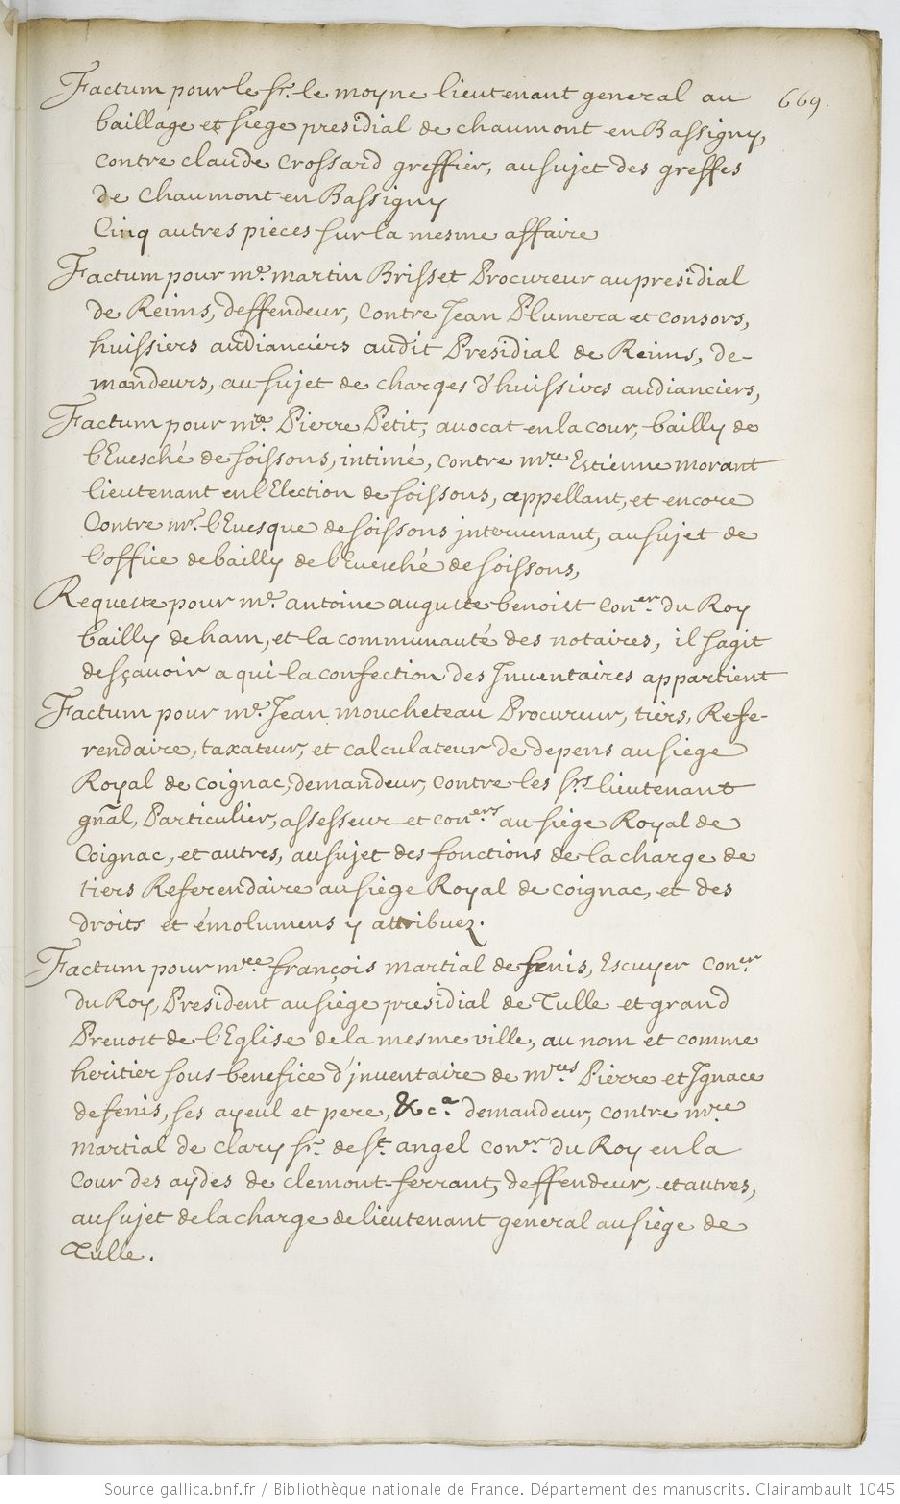 Factum pour le Sr. le moyne lieutenant general au
669.
baillage et siege presidial de chaumont en Bassigny,
contre claude Crossard greffier, au sujet des greffes
de chaumont en Bassigny
Cinq autres pieces sur la mesme affaire
Factum pour me. martin Brisset Procureur au presidial
de Reims, deffendeur, contre Jean Plumera et consors,
huissiers audianciers audit Presidial de Reims, de-
mandeurs, au sujet de charges d'huissiers audianciers,
Factum pour mre. Pierre Petit, avocat en la cour, bailly de
l'Evesché de soissons, intimé, contre mre Estienne morant
lieutenant en l'Election de soissons, appellant, et encore
Contre mr. l'Evesque de soissons intervenant, au sujet de
l'office de bailly de l'Evesché de soissons,
Requeste pour me. antoine auguste benoist Coner. du Roy
bailly de ham, et la communauté des notaires, il s'agit
de sçavoir a qui la confection des Inventaires appartient
Factum pour me. Jean moucheteau Procureur, tiers, Refe-
rendaire, taxateur, et calculateur de depens au siege
Royal de Coignac, demandeur, contre les Srs. lieutenant
gnãl, Particulier, assesseur et coners. au siége Royal de
Coignac, et autres, au sujet des fonctions de la charge de
tiers Referendaire au siége Royal de Coignac, et des
droits et émolumens y attribuez.
Factum pour mree françois martial de fenis, Escuyer coner
du Roy, President au siége presidial de Tulle et grand
Prevost de l'Eglise de la mesme ville, au nom et comme
heritier sous benefice d'inventaire de mres Pierre et Ignace
de fenis, ses ayeul et pere, &ca. demandeur, contre mre
martial de Clary Sr. de St. angel coner. du Roy en la
Cour des aydes de clemont-ferrant, deffendeur, et autres,
au sujet de la charge de lieutenant general au siége de
Tulle.
Source gallica.bnf.fr / Bibliothèque nationale de France. Département des manuscrits. Clairambault 1045